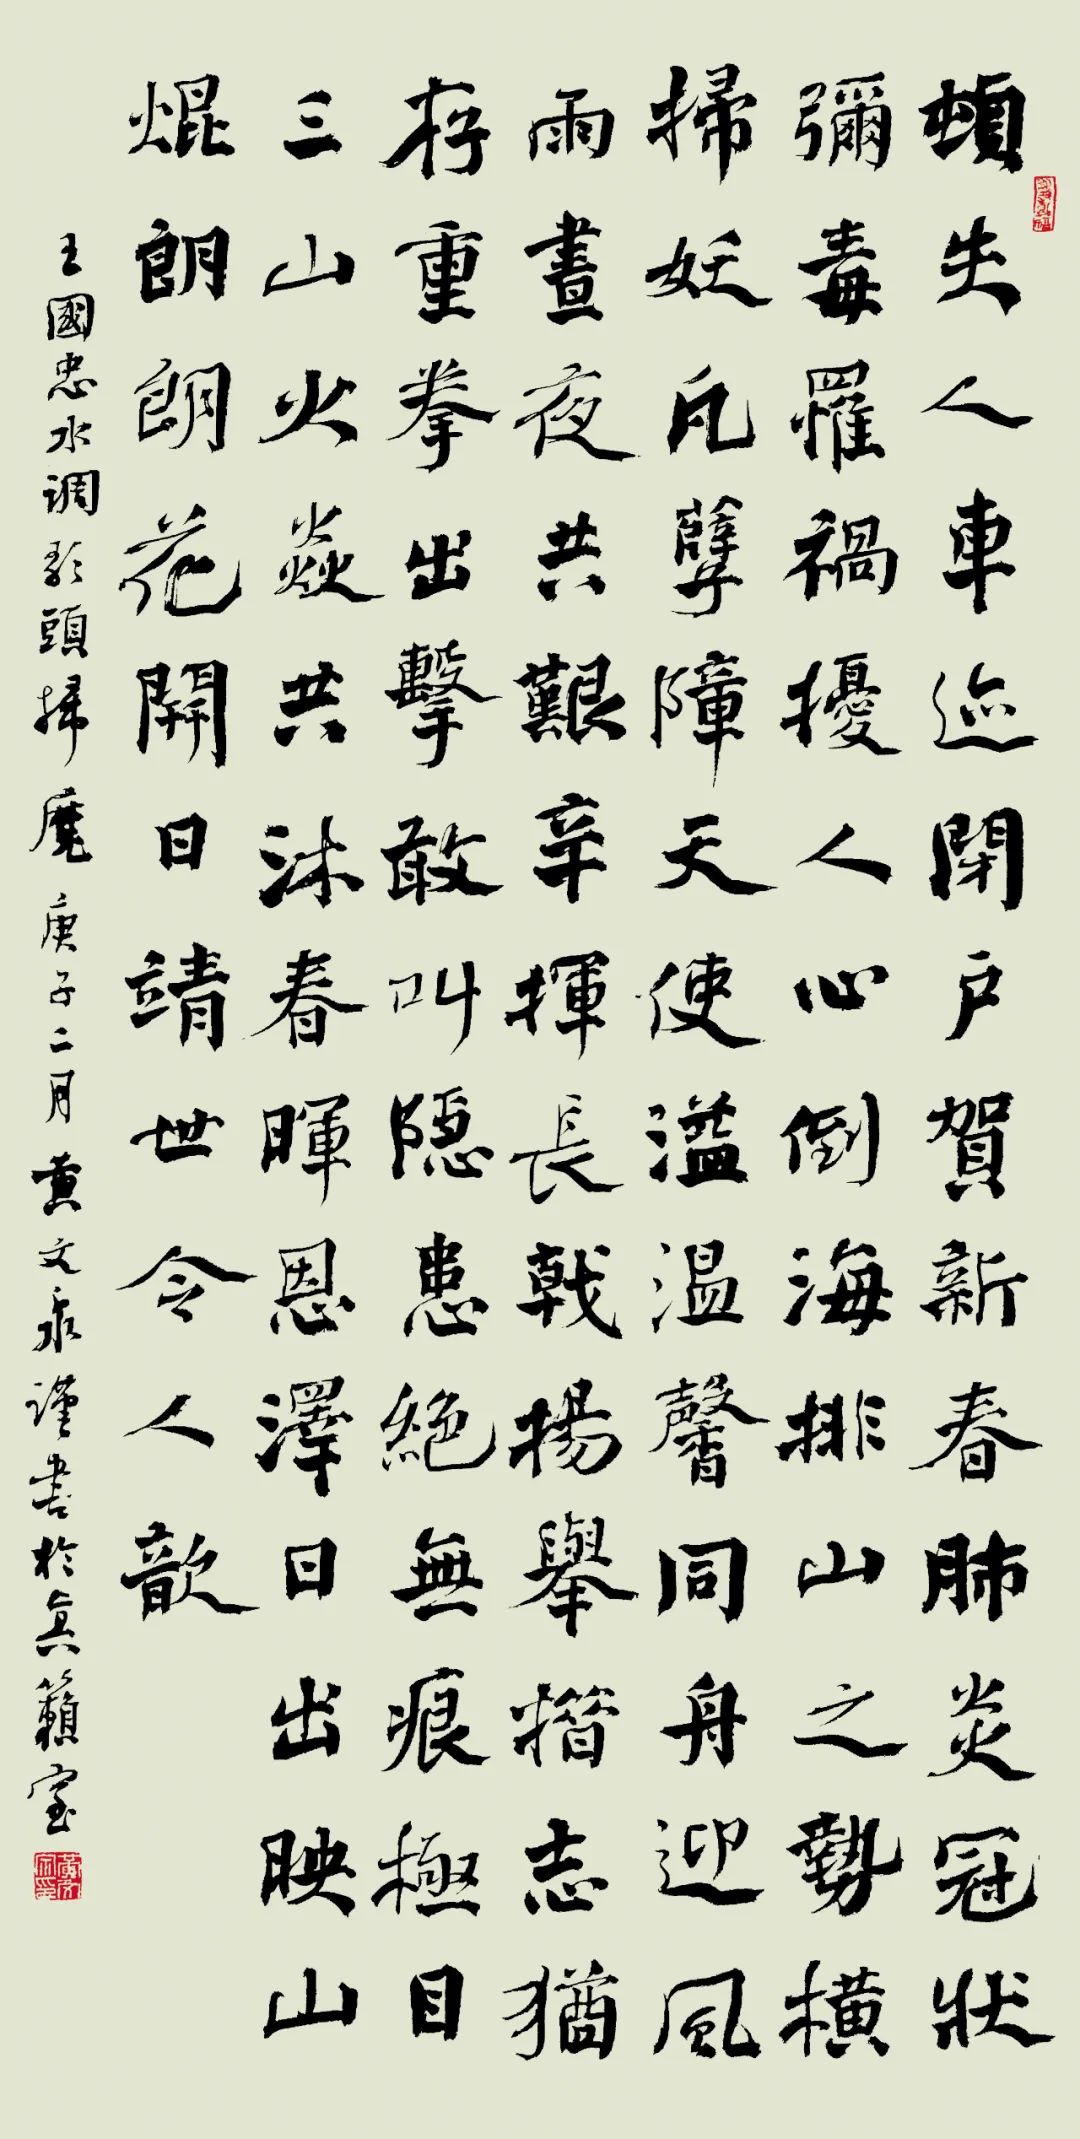 頓失人車迹閉户賀新春肺炎冠狀
彌毒罹禍擾人心倒海排山之勢橫
掃妖凡孽障天使溢温馨同舟迎風
雨晝夜共艱辛揮長戟揚舉揩志猶
存重拳出擊敢叫隱患絶無痕極目
三山火焱共沐春暉恩澤日出映山
焜朗朗花開日靖世令人歆
王國忠水调歌頭掃魔庚子二月黄文泉謹書於真籟室